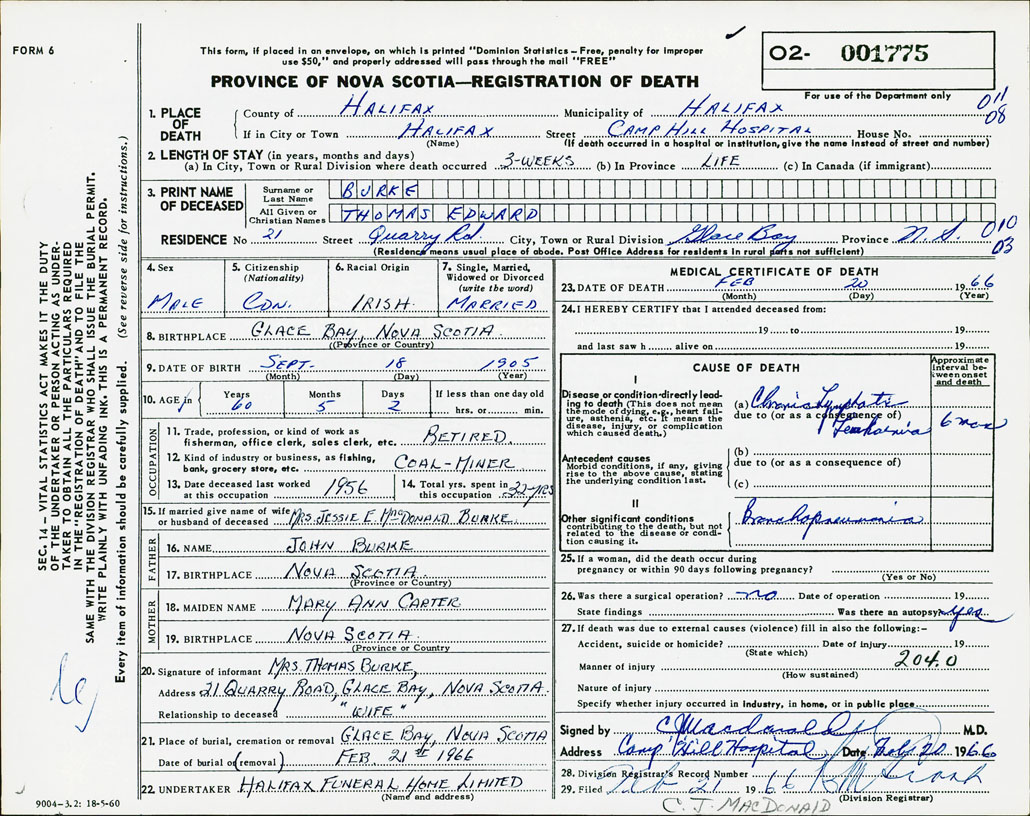 FORM 6
This form, if placed in an envelope, on which is printed "Dominion Statistics – Free, penalty for improper
use $50," and properly addressed will pass through the mail "FREE"
PROVINCE OF NOVA SCOTIA—REGISTRATION OF DEATH
02- 001775
For use of the Department only
011
08
1. PLACE OF DEATH
County of HALIFAX Municipality of HALIFAX
If in City or Town HALIFAX Street CAMP HILL HOSPITAL House No.
(Name) (If death occurred in a hospital or institution, give the name instead of street and number)
2. LENGTH OF STAY (in years, months and days)
(a) In City, Town or Rural Division where death occurred 3-WEEKS (b) In Province LIFE (c) In Canada (if immigrant)
3. PRINT NAME OF DECEASED
Surname or Last Name BURKE
All Given or Christian Names THOMAS EDWARD
RESIDENCE No 21 Street Quarry Rd. City, Town or Rural Division Glace Bay Province N.S. 010
03
(Residence means usual place of abode. Post Office Address for residents in rural parts not sufficient)
4. Sex MALE
5. Citizenship (Nationality) CDN.
6. Racial Origin IRISH.
7. Single, Married, Widowed or Divorced (write the word) MARRIED
8. BIRTHPLACE GLACE BAY, NOVA SCOTIA.
(Province or Country)
9. DATE OF BIRTH SEPT. 18 1905
(Month) (Day) (Year)
10. AGE in Years 60 Months 5 Days 2 If less than one day old hrs. or min.
OCCUPATION
11. Trade, profession, or kind of work as
fisherman, office clerk, sales clerk, etc. RETIRED.
12. Kind of industry or business, as fishing,
bank, grocery store, etc. COAL-MINER
13. Date deceased last worked at this occupation 1956
14. Total yrs. spent in this occupation 32-YRS
15. If married give name of wife
or husband of deceased MRS. JESSIE E. MacDONALD BURKE.
FATHER
16. NAME JOHN BURKE
17. BIRTHPLACE NOVA SCOTIA.
(Province or Country)
MOTHER
18. MAIDEN NAME MARY ANN CARTER
19. BIRTHPLACE NOVA SCOTIA.
(Province or Country)
20. Signature of informant MRS. THOMAS BURKE,
Address 21 QUARRY ROAD, GLACE BAY, NOVA SCOTIA.
Relationship to deceased "WIFE"
21. Place of burial, cremation or removal GLACE BAY, NOVA SCOTIA
Date of burial or (removal) FEB. 21st 1966
22. UNDERTAKER HALIFAX FUNERAL HOME LIMITED
(Name and address)
9004-3.2: 18-5-60
MEDICAL CERTIFICATE OF DEATH
23. DATE OF DEATH FEB 20 1966
(Month) (Day) (Year)
24. I HEREBY CERTIFY that I attended deceased from:
19 to 19
and last saw h alive on 19
CAUSE OF DEATH
Approximate interval between onset and death
I
Disease or condition directly leading to death (This does not mean the mode of dying, e.g., heart failure, asthenia, etc. It means the disease, injury, or complication which caused death.)
(a) Chronic Lymphatic
due to (or as a consequence of)
Leukaemia 6 mos
Antecedent causes
Morbid conditions, if any, giving rise to the above cause, stating the underlying condition last.
(b)
due to (or as a consequence of)
(c)
II
Other significant conditions
contributing to the death, but not related to the disease or condition causing it.
Bronchopneumonia
25. If a woman, did the death occur during
pregnancy or within 90 days following pregnancy?
(Yes or No)
26. Was there a surgical operation? no Date of operation 19
State findings Was there an autopsy? yes
27. If death was due to external causes (violence) fill in also the following:–
Accident, suicide or homicide? Date of injury 19
(State which)
204.0
Manner of injury
(How sustained)
Nature of injury
Specify whether injury occurred in industry, in home, or in public place
Signed by M.D.
Address Camp Hill Hospital Date Feb 20 1966
28. Division Registrar's Record Number
29. Filed Feb 21 1966
(Division Registrar)
C. J. MACDONALD
SEC. 14 – VITAL STATISTICS ACT MAKES IT THE DUTY
OF THE UNDERTAKER OR PERSON ACTING AS UNDER-
TAKER TO OBTAIN ALL THE PARTICULARS REQUIRED
IN THE "REGISTRATION OF DEATH" AND TO FILE THE
SAME WITH THE DIVISION REGISTRAR WHO SHALL ISSUE THE BURIAL PERMIT.
WRITE PLAINLY WITH UNFADING INK. THIS IS A PERMANENT RECORD.
Every item of information should be carefully supplied. (See reverse side for instructions.)